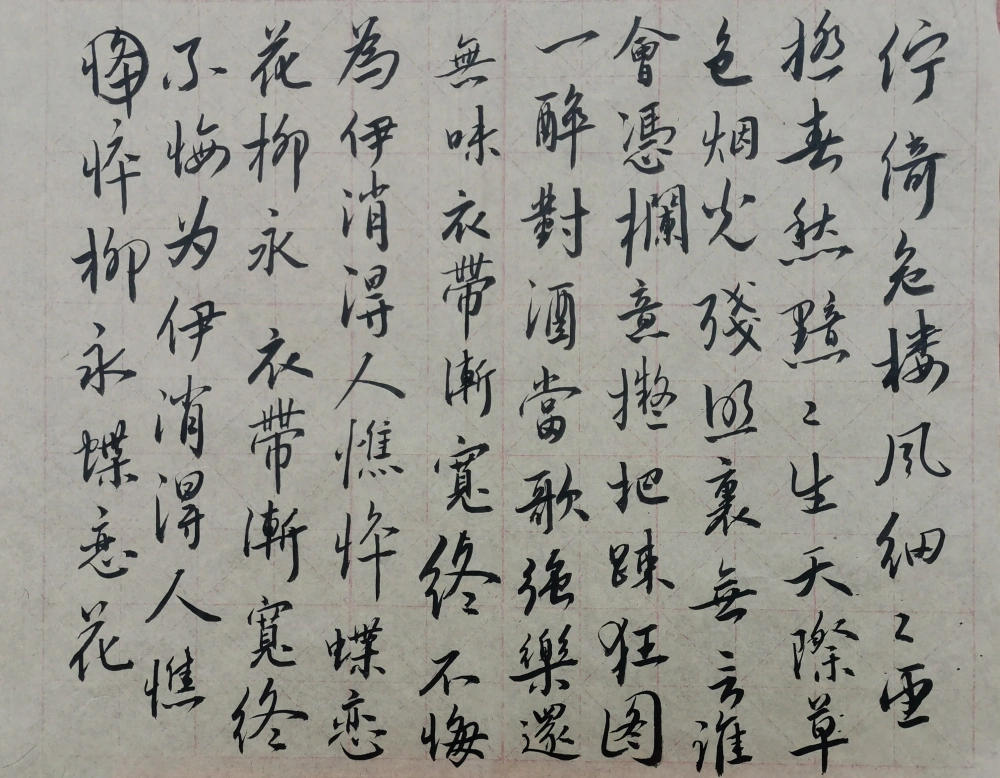 佇倚危楼风细〻望
極春愁黯〻生天際草
色烟光殘照裏無言誰
會憑欄意擬把踈狂图
一醉對酒當歌強樂還
無味衣帶漸寬終不悔
為伊消得人憔悴蝶恋
花柳永 衣帶漸寬終
不悔为伊消得人憔
悴柳永蝶恋花